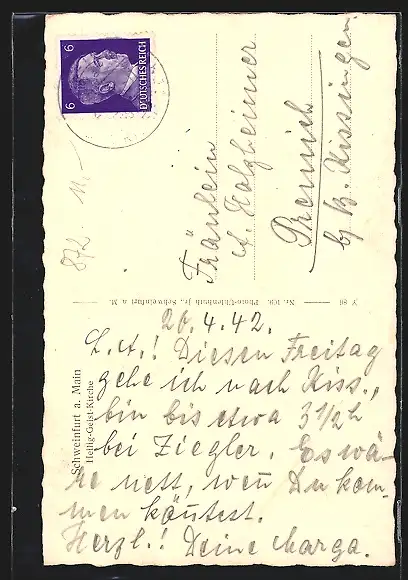 6 6
DEUTSCHES REICH
872 11,-
Fräulein
A. Holzheimer
Premich
b/ B. Kissingen
Y 86 Nr. 106 Photo-Uhlenhuth jr., Schweinfurt a. M.
Schweinfurt a. Main
Heilig-Geist-Kirche
20.4.42.
L. A.! Diesen Freitag
gehe ich nach Kiss.,
bin bis etwa 3 1/2 h
bei Ziegler. Es wä-
re nett, wen̄ Du kom-
men kön̄test.
Herzl.! Deine Marga.